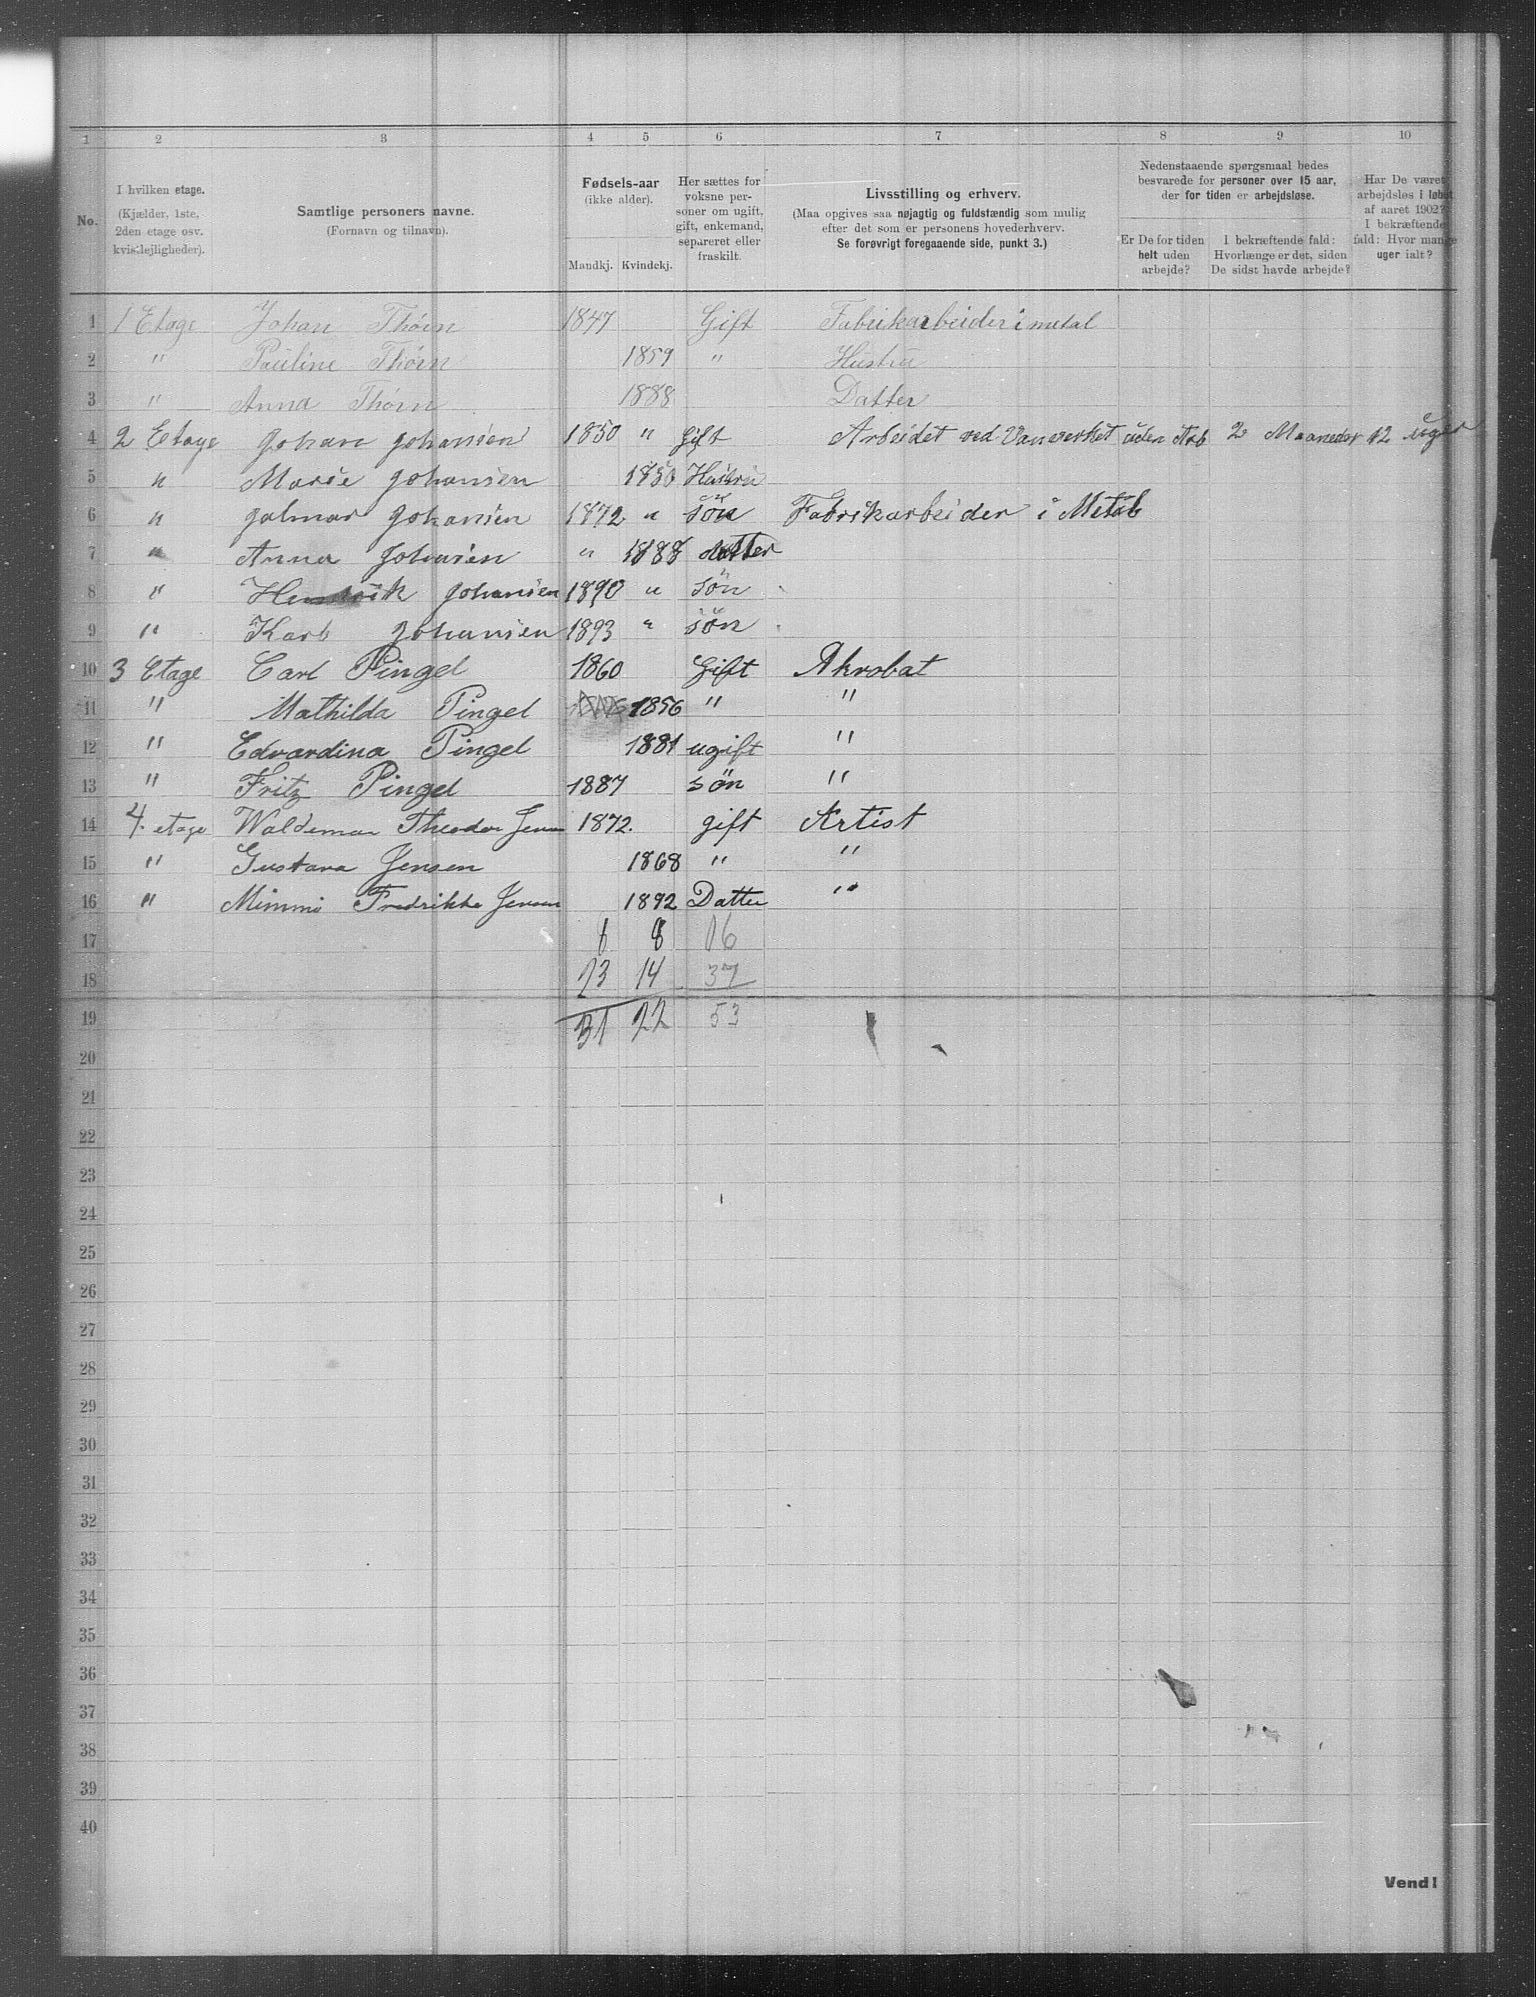 1 2 3 4 5 6 7 8 9 10
No. I hvilken etage. (Kjælder, 1ste, 2den etage osv. kvistlejligheder). Samtlige personers navne. (Fornavn og tilnavn). Fødsels-aar (ikke alder). Mandkj. Kvindekj. Her sættes for voksne personer om ugift, gift, enkemand, separeret eller fraskilt. Livsstilling og erhverv. (Maa opgives saa nøjagtig og fuldstændig som mulig efter det som er personens hovederhverv. Se forøvrigt foregaaende side, punkt 3.) Nedenstaaende spørgsmaal bedes besvarede for personer over 15 aar, der for tiden er arbejdsløse. Er De for tiden helt uden arbejde? I bekræftende fald: Hvorlænge er det, siden De sidst havde arbejde? Har De været arbejdsløs i løbet af aaret 1902? I bekræftende fald: Hvor mange uger ialt?
1 1 Etage Johan Thorn 1847 Gift Fabrikarbeider i metal
2 " Pauline Thorn 1859 " Hustru
3 " Anna Thorn 1888 Datter
4 2 Etage Johan Johansen 1850 " Gift Arbeidet ved uden Arb 2 Maaneder 12 uger
5 " Marie Johansen 1850 Hustru
6 " Jalmar Johansen 1872 " sön Fabrikarbeider i Metal
7 " Anna Johansen " 1888 datter
8 " Hendrik Johansen 1890 " sön
9 " Karl Johansen 1893 " sön
10 3 Etage Carl Pingel 1860 Gift Akrobat
11 " Mathilda Pingel 1856 " "
12 " Edvardina Pingel 1881 ugift "
13 " Fritz Pingel 1887 sön "
14 4. etage Waldemar Theodor Jensen 1872. gift Artist
15 " Gustava Jensen 1868 " "
16 " Mimmi Fredrikke Jensen 1892 Datter "
17 8 16
18 23 14 37
19 31 22 53
20
21
22
23
24
25
26
27
28
29
30
31
32
33
34
35
36
37
38
39
40
Vend!